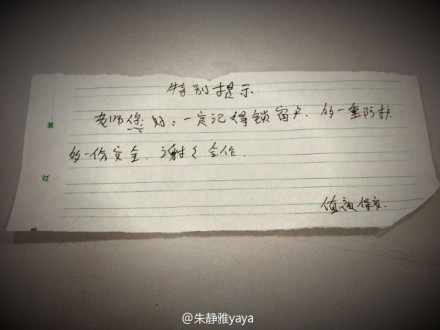 特别提示
老师您好：一定记得锁窗户.加一重防护
加一份安全.谢谢合作.
值夜保安.
订
@朱静雅yaya